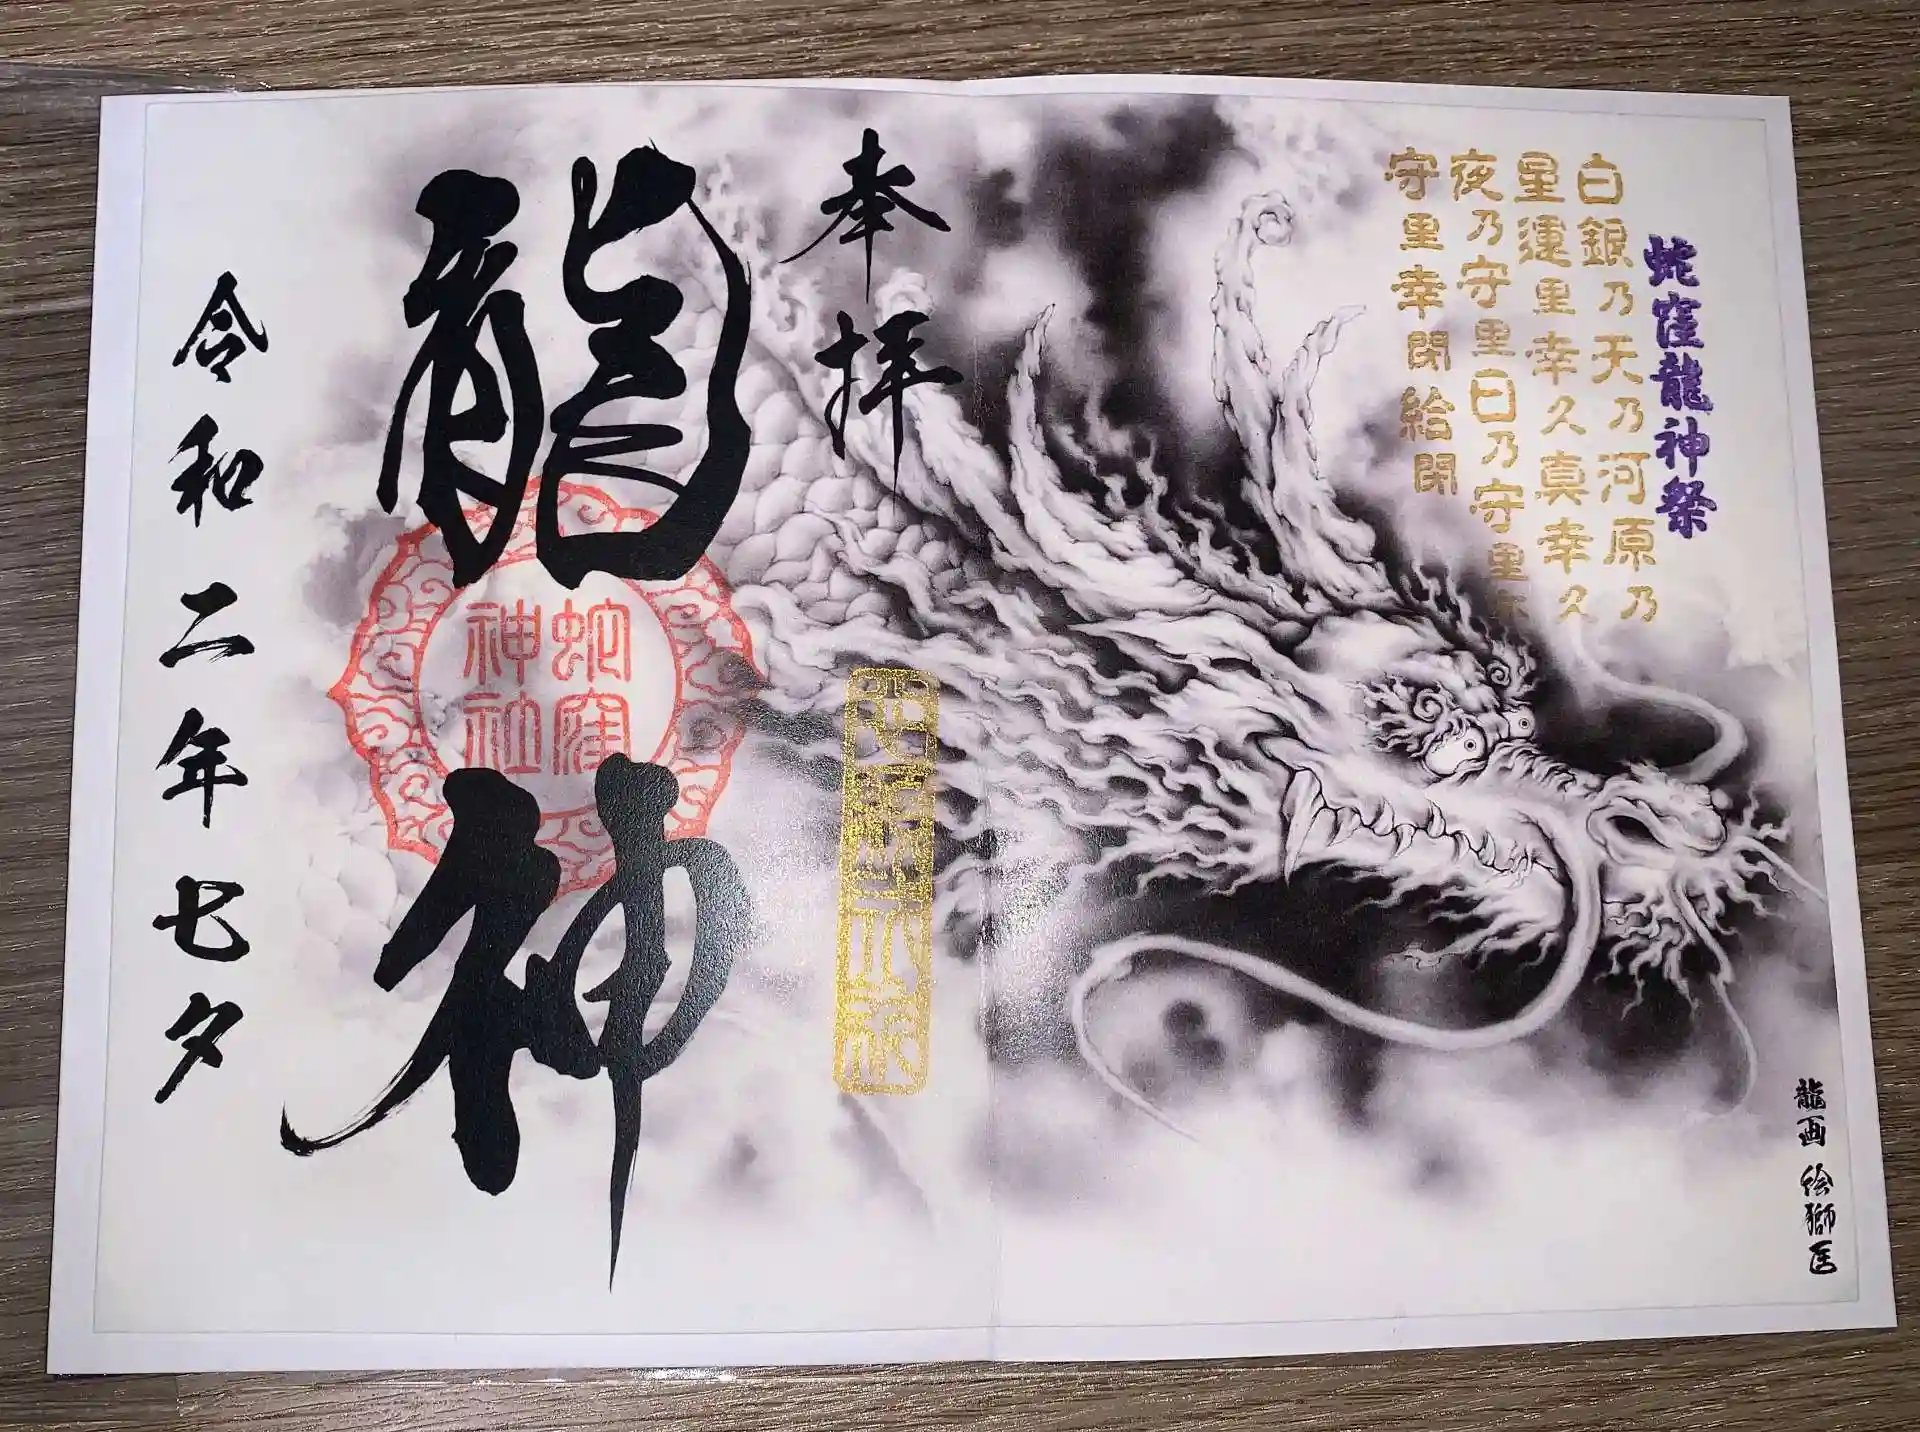 蛇窪龍神祭
白銀乃天乃河原乃
星運里幸久真幸久
夜乃守里日乃守里尓
守里幸閇給閇
龍画 絵獅匡
奉拝
龍神
蛇窪
神社
令和二年七夕